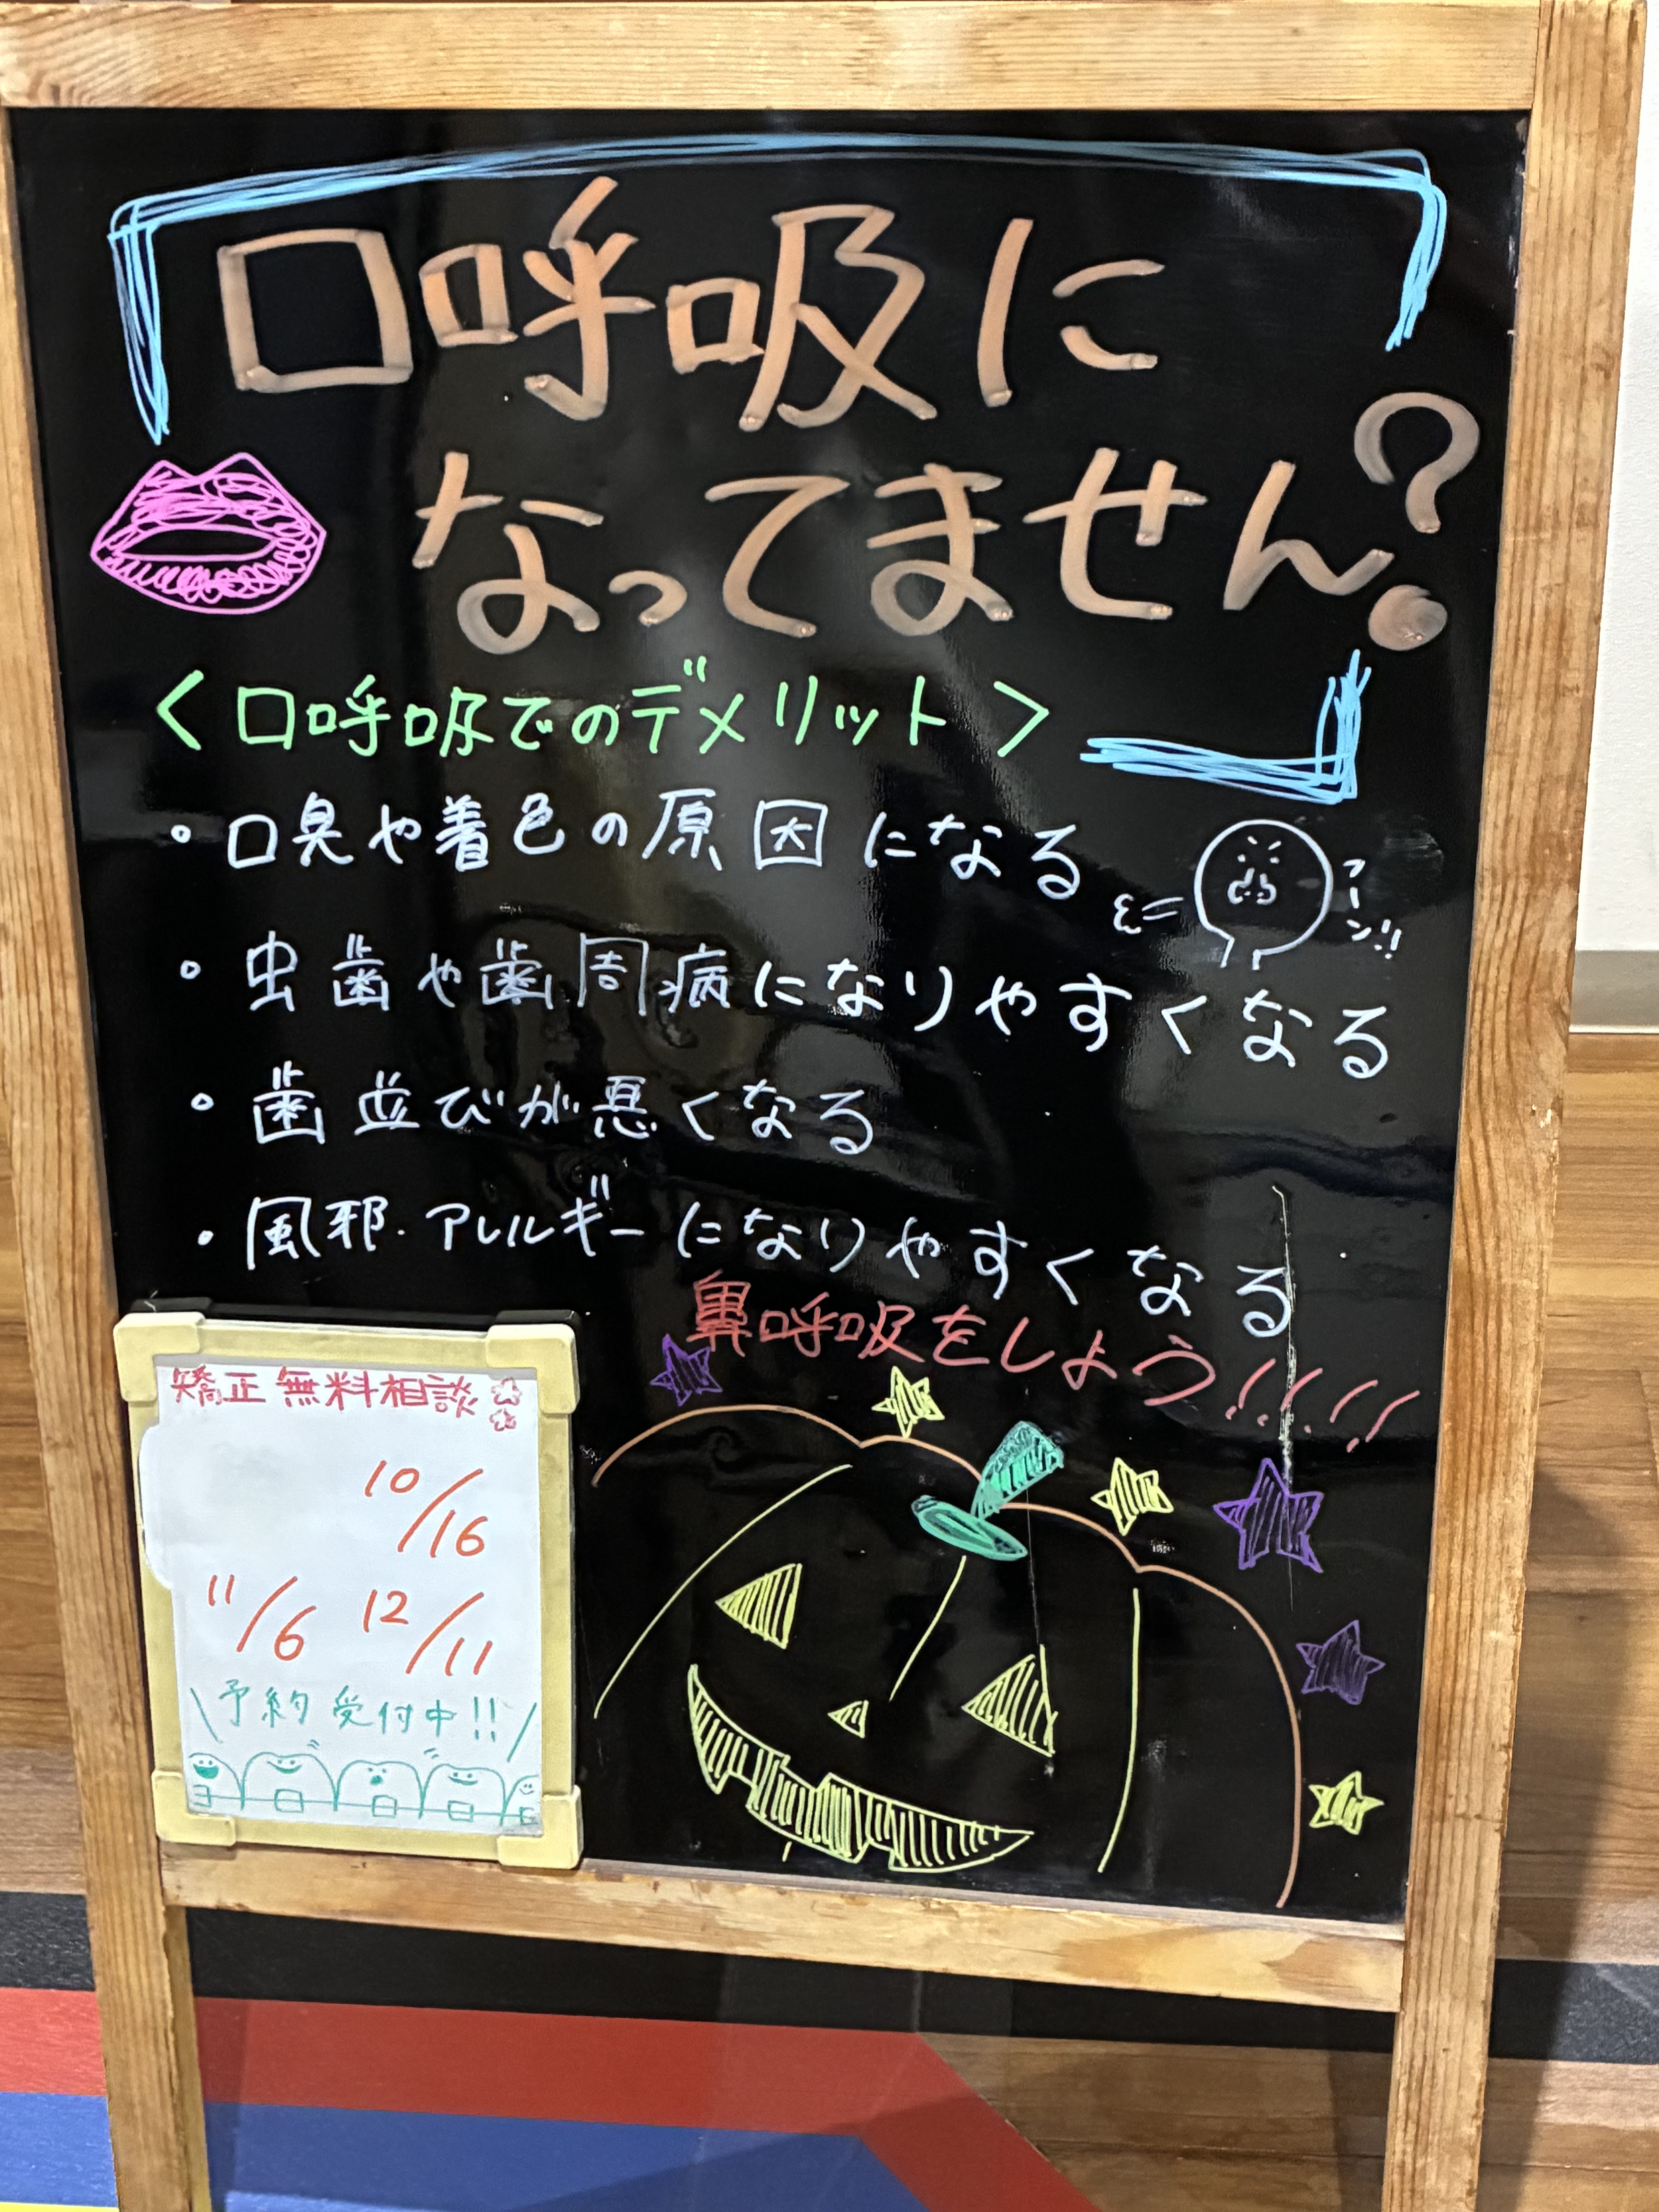 口呼吸に
なってません?
<口呼吸でのデメリット>
・口臭や着色の原因になる
フーン!!
・虫歯や歯周病になりやすくなる
・歯並びが悪くなる
・風邪・アレルギーになりやすくなる
鼻呼吸をしよう!!!!
矯正無料相談
10/16
11/6 12/11
\予約受付中!!/